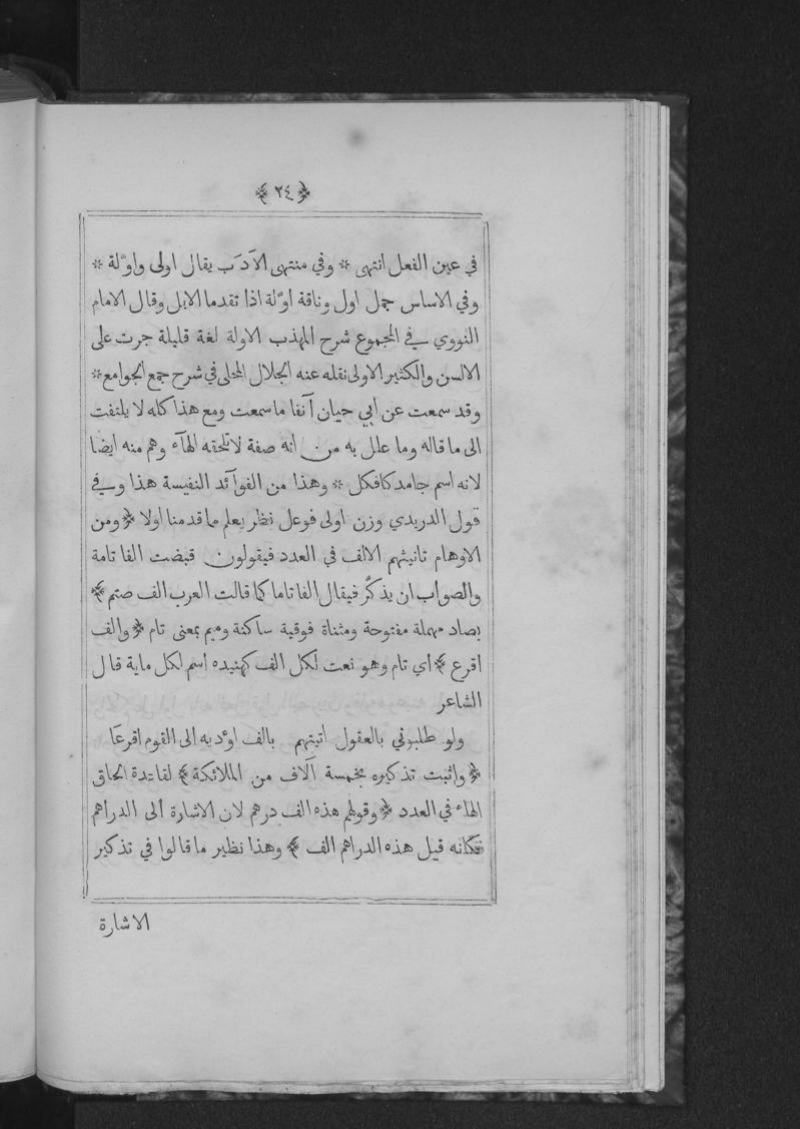 ﴿٢٤﴾
في عين الفعل انتهى * وفي منتهى الأدَب يقال اولى واوّلة *
وفي الاساس جمل اول وناقة اوّلة اذا تقدما الابل وقال الامام
النووي في المجموع شرح المهذب الاولة لغة قليلة جرت على
الالسن والكثير الاولى نقله عنه الجلال المحلى في شرح جمع الجوامع *
وقد سمعت عن ابي حيان آنفا ما سمعت ومع هذا كله لا يلتفت
الى ما قاله وما علل به من انه صفة لا تلحقه الهآء وهم منه ايضا
لانه اسم جامد كافكل * وهذا من الفوآئد النفيسة هذا وفي
قول الدريدي وزن اولى فوعل نظر يعلم مما قدمنا اولا ﴿ومن
الاوهام تانيثهم الالف في العدد فيقولون قبضت الفا تامة
والصواب ان يذكّر فيقال الفا تاما كما قالت العرب الف صتم﴾
بصاد مهملة مفتوحة ومثناة فوقية ساكنة وميم بمعنى تام ﴿والف
اقرع﴾ أي تام وهو نعت لكل الف كهنيده اسم لكل ماية قال
الشاعر
ولو طلبوني بالعقول اتيتهم بالف اوّديه الى القوم اقرعَا
﴿واثبت تذكيره بخمسة آلاف من الملائكة﴾ لفائدة الحاق
الهاء في العدد ﴿وقولهم هذه الف درهم لان الاشارة ألى الدراهم
فكانه قيل هذه الدراهم الف﴾ وهذا نظير ما قالوا في تذكير
الاشارة